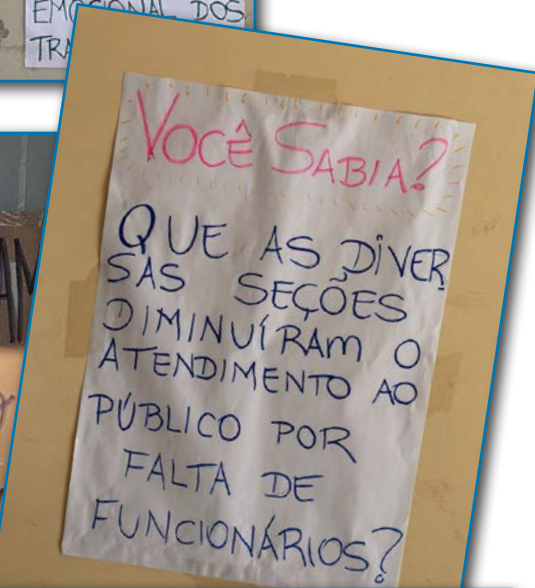 EMOCIONAL DOS
VOCÊ SABIA?
QUE AS DIVER
SAS SEÇÕES
DIMINUÍRAM O
ATENDIMENTO AO
PÚBLICO POR
FALTA DE
FUNCIONÁRIOS?